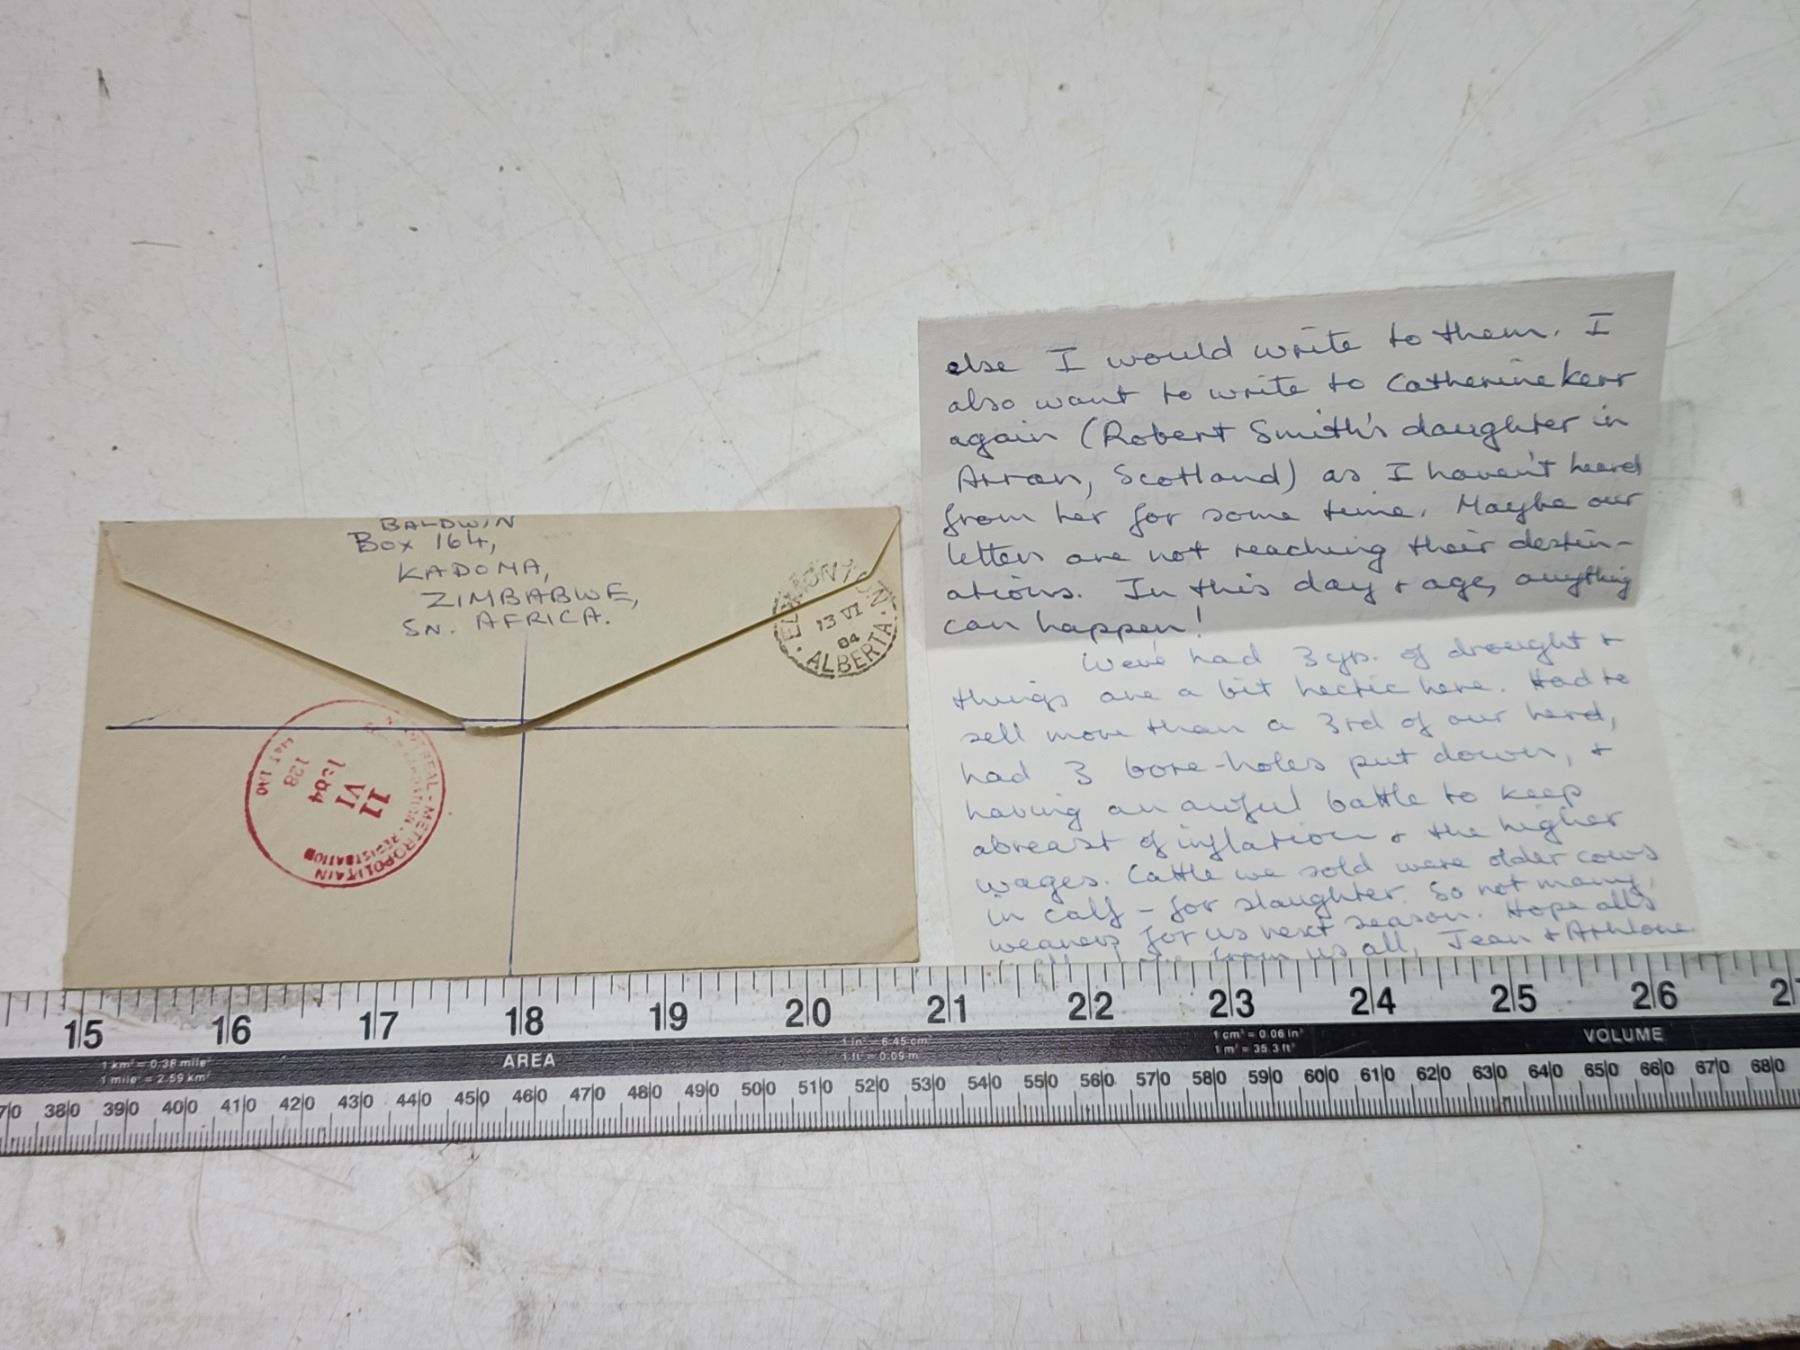 BALDWIN
Box 164,
KADOMA,
ZIMBABWE,
SN. AFRICA.
EDMONTON
13 VI
84
ALBERTA
MONTREAL-METROPOLITAIN
REGISTRATION
11
VI
1984
138
else I would write to them. I
also want to write to Catherine Kerr
again (Robert Smith's daughter in
Arran, Scotland) as I haven't heard
from her for some time. Maybe our
letters are not reaching their destin-
ations. In this day + age, anything
can happen!
We've had 3 yrs. of drought +
things are a bit hectic here. Had to
sell more than a 3rd of our herd,
had 3 bore-holes put down, +
having an awful battle to keep
abreast of inflation + the higher
wages. Cattle we sold were older cows
in calf - for slaughter. So not many
weaners for us next season. Hope all's
from us all, Jean + Athlone.
15 16 17 18 19 20 21 22 23 24 25 26 2
1 km² = 0.38 mile²
1 mile² = 2.59 km²
AREA
1 in² = 6.45 cm²
1 ft² = 0.09 m
1 cm³ = 0.06 in³
1 m³ = 35.3 ft³
VOLUME
70 380 390 400 410 420 430 440 450 460 470 480 490 500 510 520 530 540 550 560 570 580 590 600 610 620 630 640 650 660 670 680